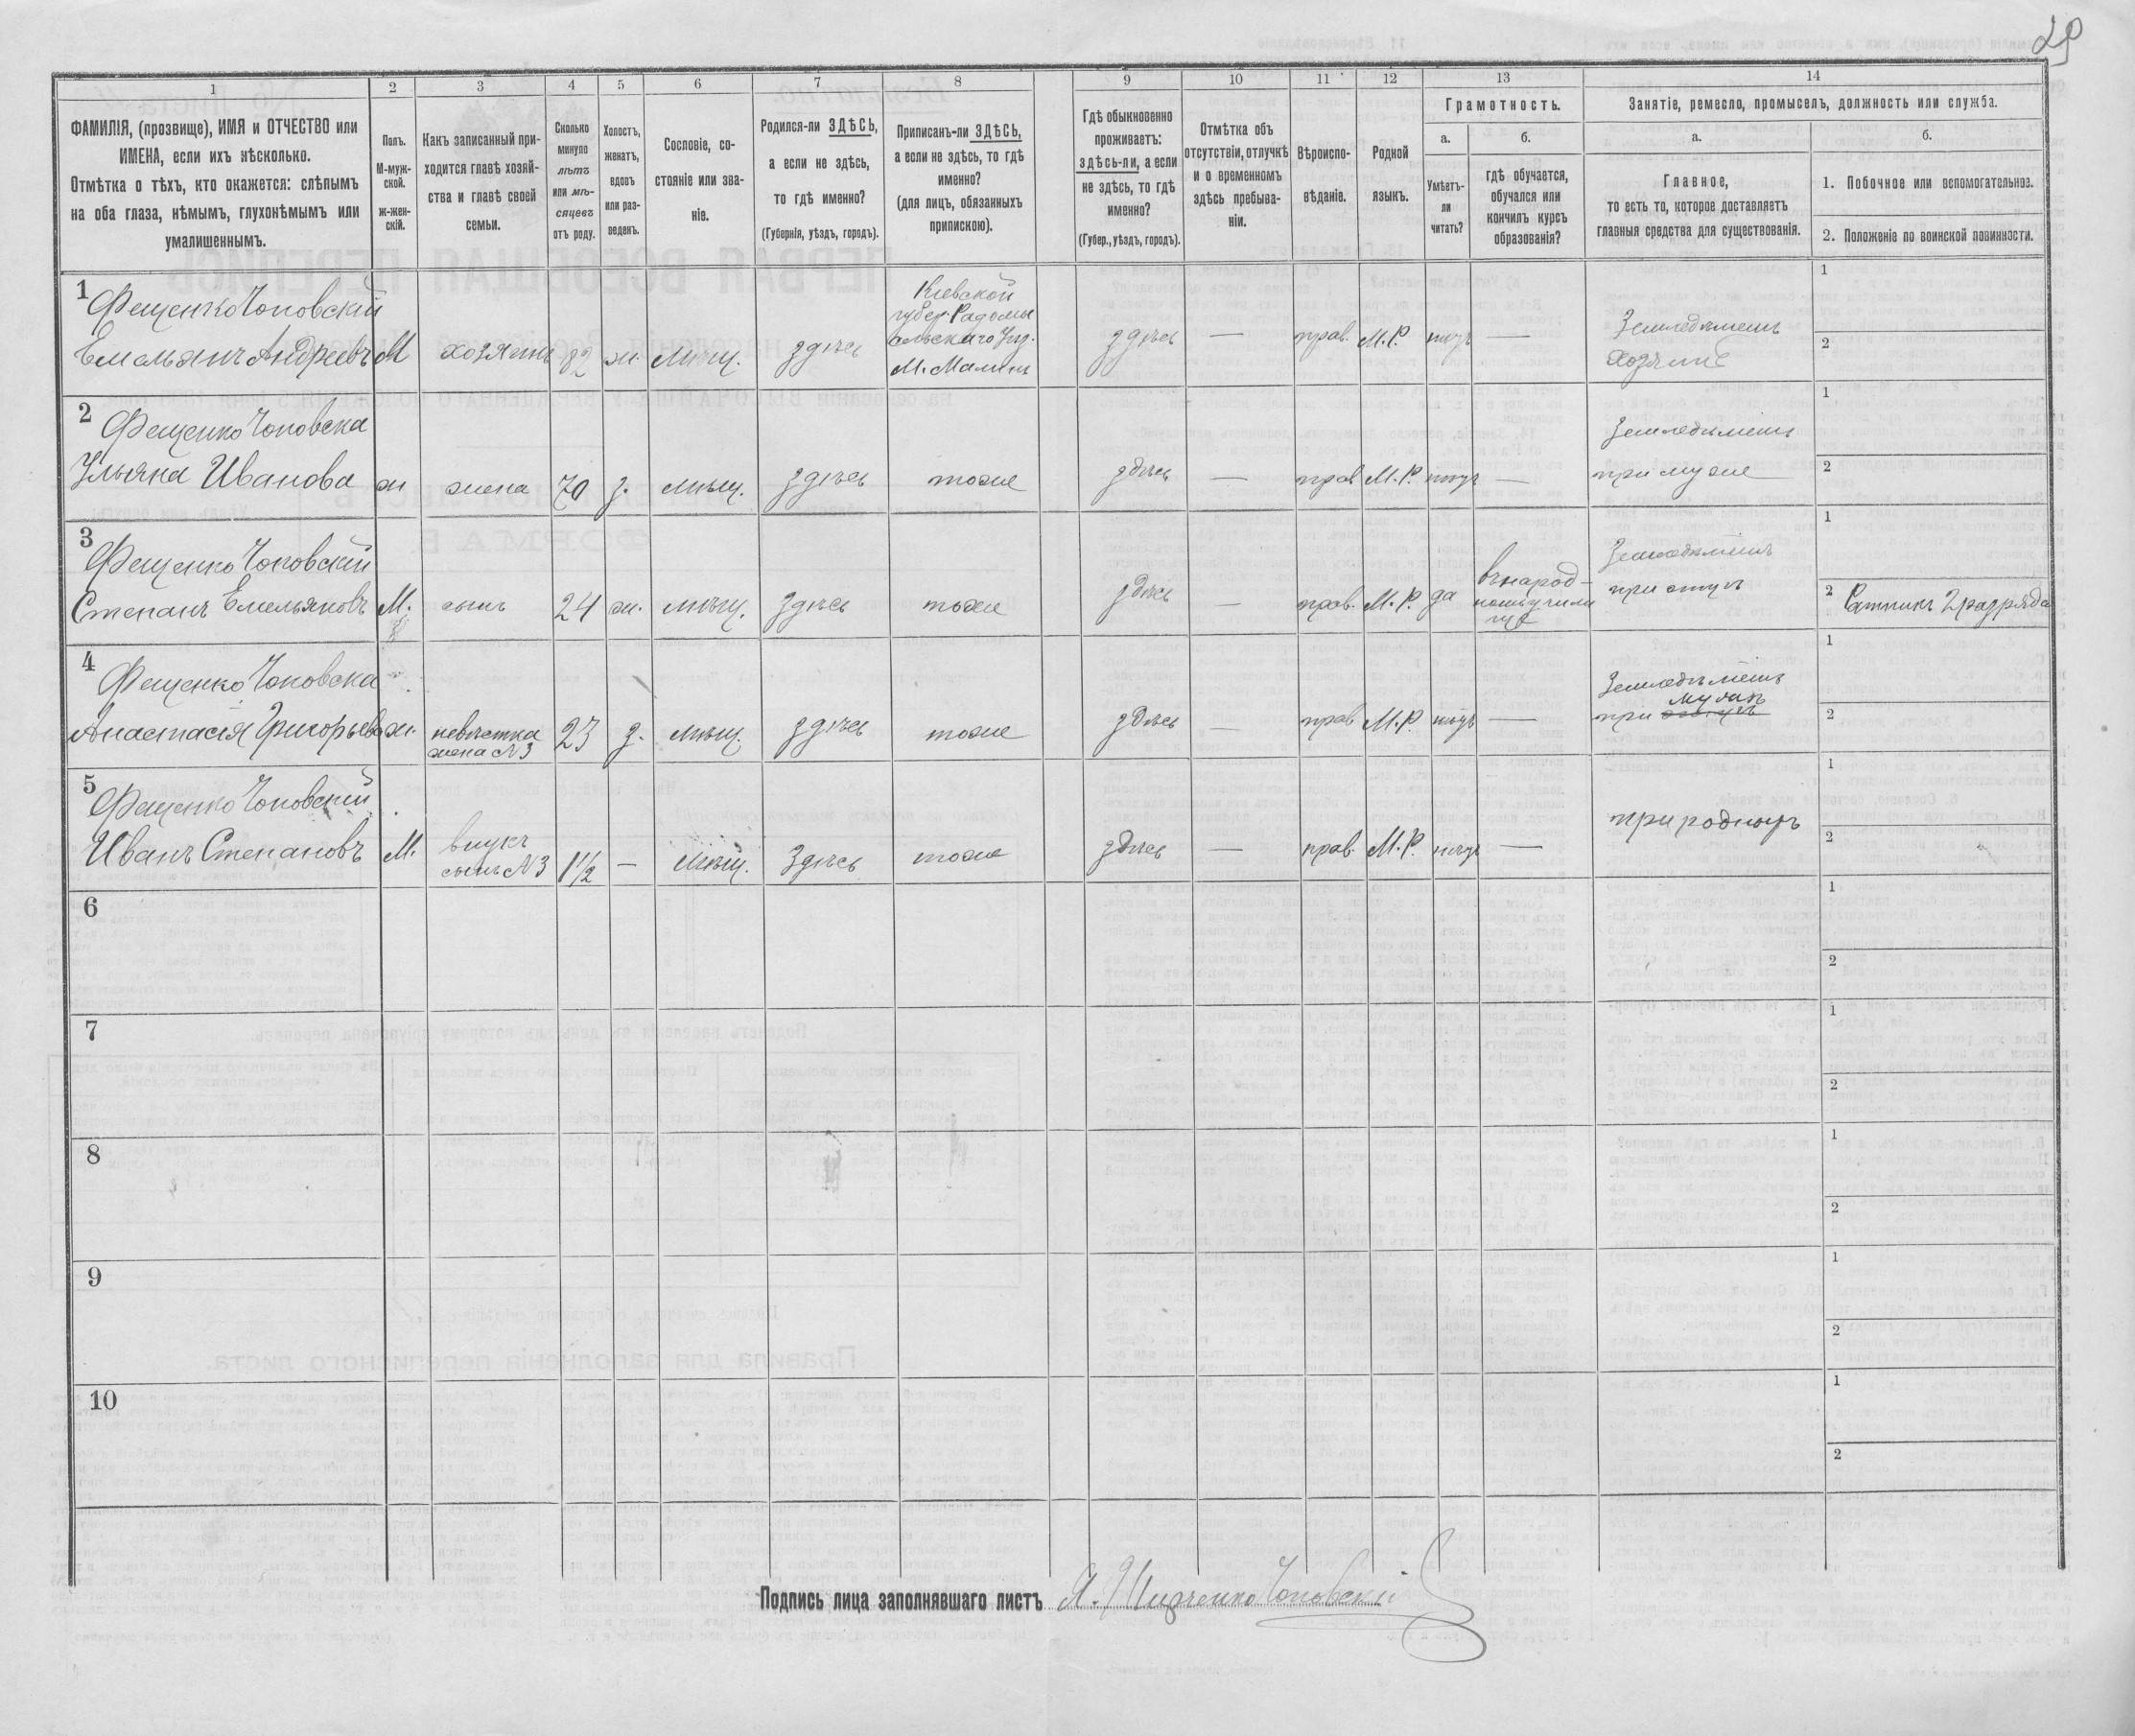 29
1
2
3
4
5
6
7
8
9
10
11
12
13
14
ФАМИЛІЯ, (прозвище), ИМЯ и ОТЧЕСТВО или
ИМЕНА, если ихъ нѣсколько.
Отмѣтка о тѣхъ, кто окажется: слѣпымъ
на оба глаза, нѣмымъ, глухонѣмымъ или
умалишеннымъ.
Полъ.
М-муж-
ской.
ж-жен-
скій.
Какъ записанный при-
ходится главѣ хозяй-
ства и главѣ своей
семьи.
Сколько
минуло
лѣтъ
или мѣ-
сяцевъ
отъ роду.
Холостъ,
женатъ,
вдовъ
или раз-
веденъ.
Сословіе, со-
стояніе или зва-
ніе.
Родился-ли ЗДѢСЬ,
а если не здѣсь,
то гдѣ именно?
(Губернія, уѣздъ, городъ).
Приписанъ-ли ЗДѢСЬ,
а если не здѣсь, то гдѣ
именно?
(для лицъ, обязанныхъ
припискою).
Гдѣ обыкновенно
проживаетъ:
здѣсь-ли, а если
не здѣсь, то гдѣ
именно?
(Губер., уѣздъ, городъ).
Отмѣтка объ
отсутствіи, отлучкѣ
и о временномъ
здѣсь пребыва-
ніи.
Вѣроиспо-
вѣданіе.
Родной
языкъ.
Грамотность.
а.
б.
Умѣетъ-
ли
читать?
гдѣ обучается,
обучался или
кончилъ курсъ
образованія?
Занятіе, ремесло, промыселъ, должность или служба.
а.
б.
Главное,
то есть то, которое доставляетъ
главныя средства для существованія.
1. Побочное или вспомогательное.
2. Положеніе по воинской повинности.
1
Фещенко Чоповскій
Емельянъ Андреевъ
М
хозяинъ
82
ж.
мѣщ.
здѣсь
Кіевской
губер. Радомы
сльскаго Уѣз.
М. Малинъ
здѣсь
—
прав.
М.Р.
нѣтъ
—
Земледѣлецъ
хозяинъ
1
2
2
Фещенко Чоповска
Ульяна Иванова
ж
жена
70
з.
мѣщ.
здѣсь
тоже
здѣсь
—
прав
М.Р.
нѣтъ
—
при мужѣ
1
2
3
Фещенко Чоповскій
Степанъ Емельяновъ
М.
сынъ
24
ж.
мѣщ.
здѣсь
тоже
здѣсь
—
прав.
М.Р.
да
въ народ-
номъ училищѣ
при отцѣ
1
2 Ратникъ 2 разряда
4
Фещенко Чоповска
Анастасія Григорьева
ж.
невѣстка
жена №3
23
з.
мѣщ.
здѣсь
тоже
здѣсь
—
прав
М.Р.
нѣтъ
—
мужѣ
при
1
2
5
Фещенко Чоповскій
Иванъ Степановъ
М.
внукъ
сынъ №3
1½
—
мѣщ.
здѣсь
тоже
здѣсь
—
прав.
М.Р.
нѣтъ
—
при родныхъ
1
2
6
1
2
7
1
2
8
1
2
9
1
2
10
1
2
Подпись лица заполнявшаго листъ
Чоповскій